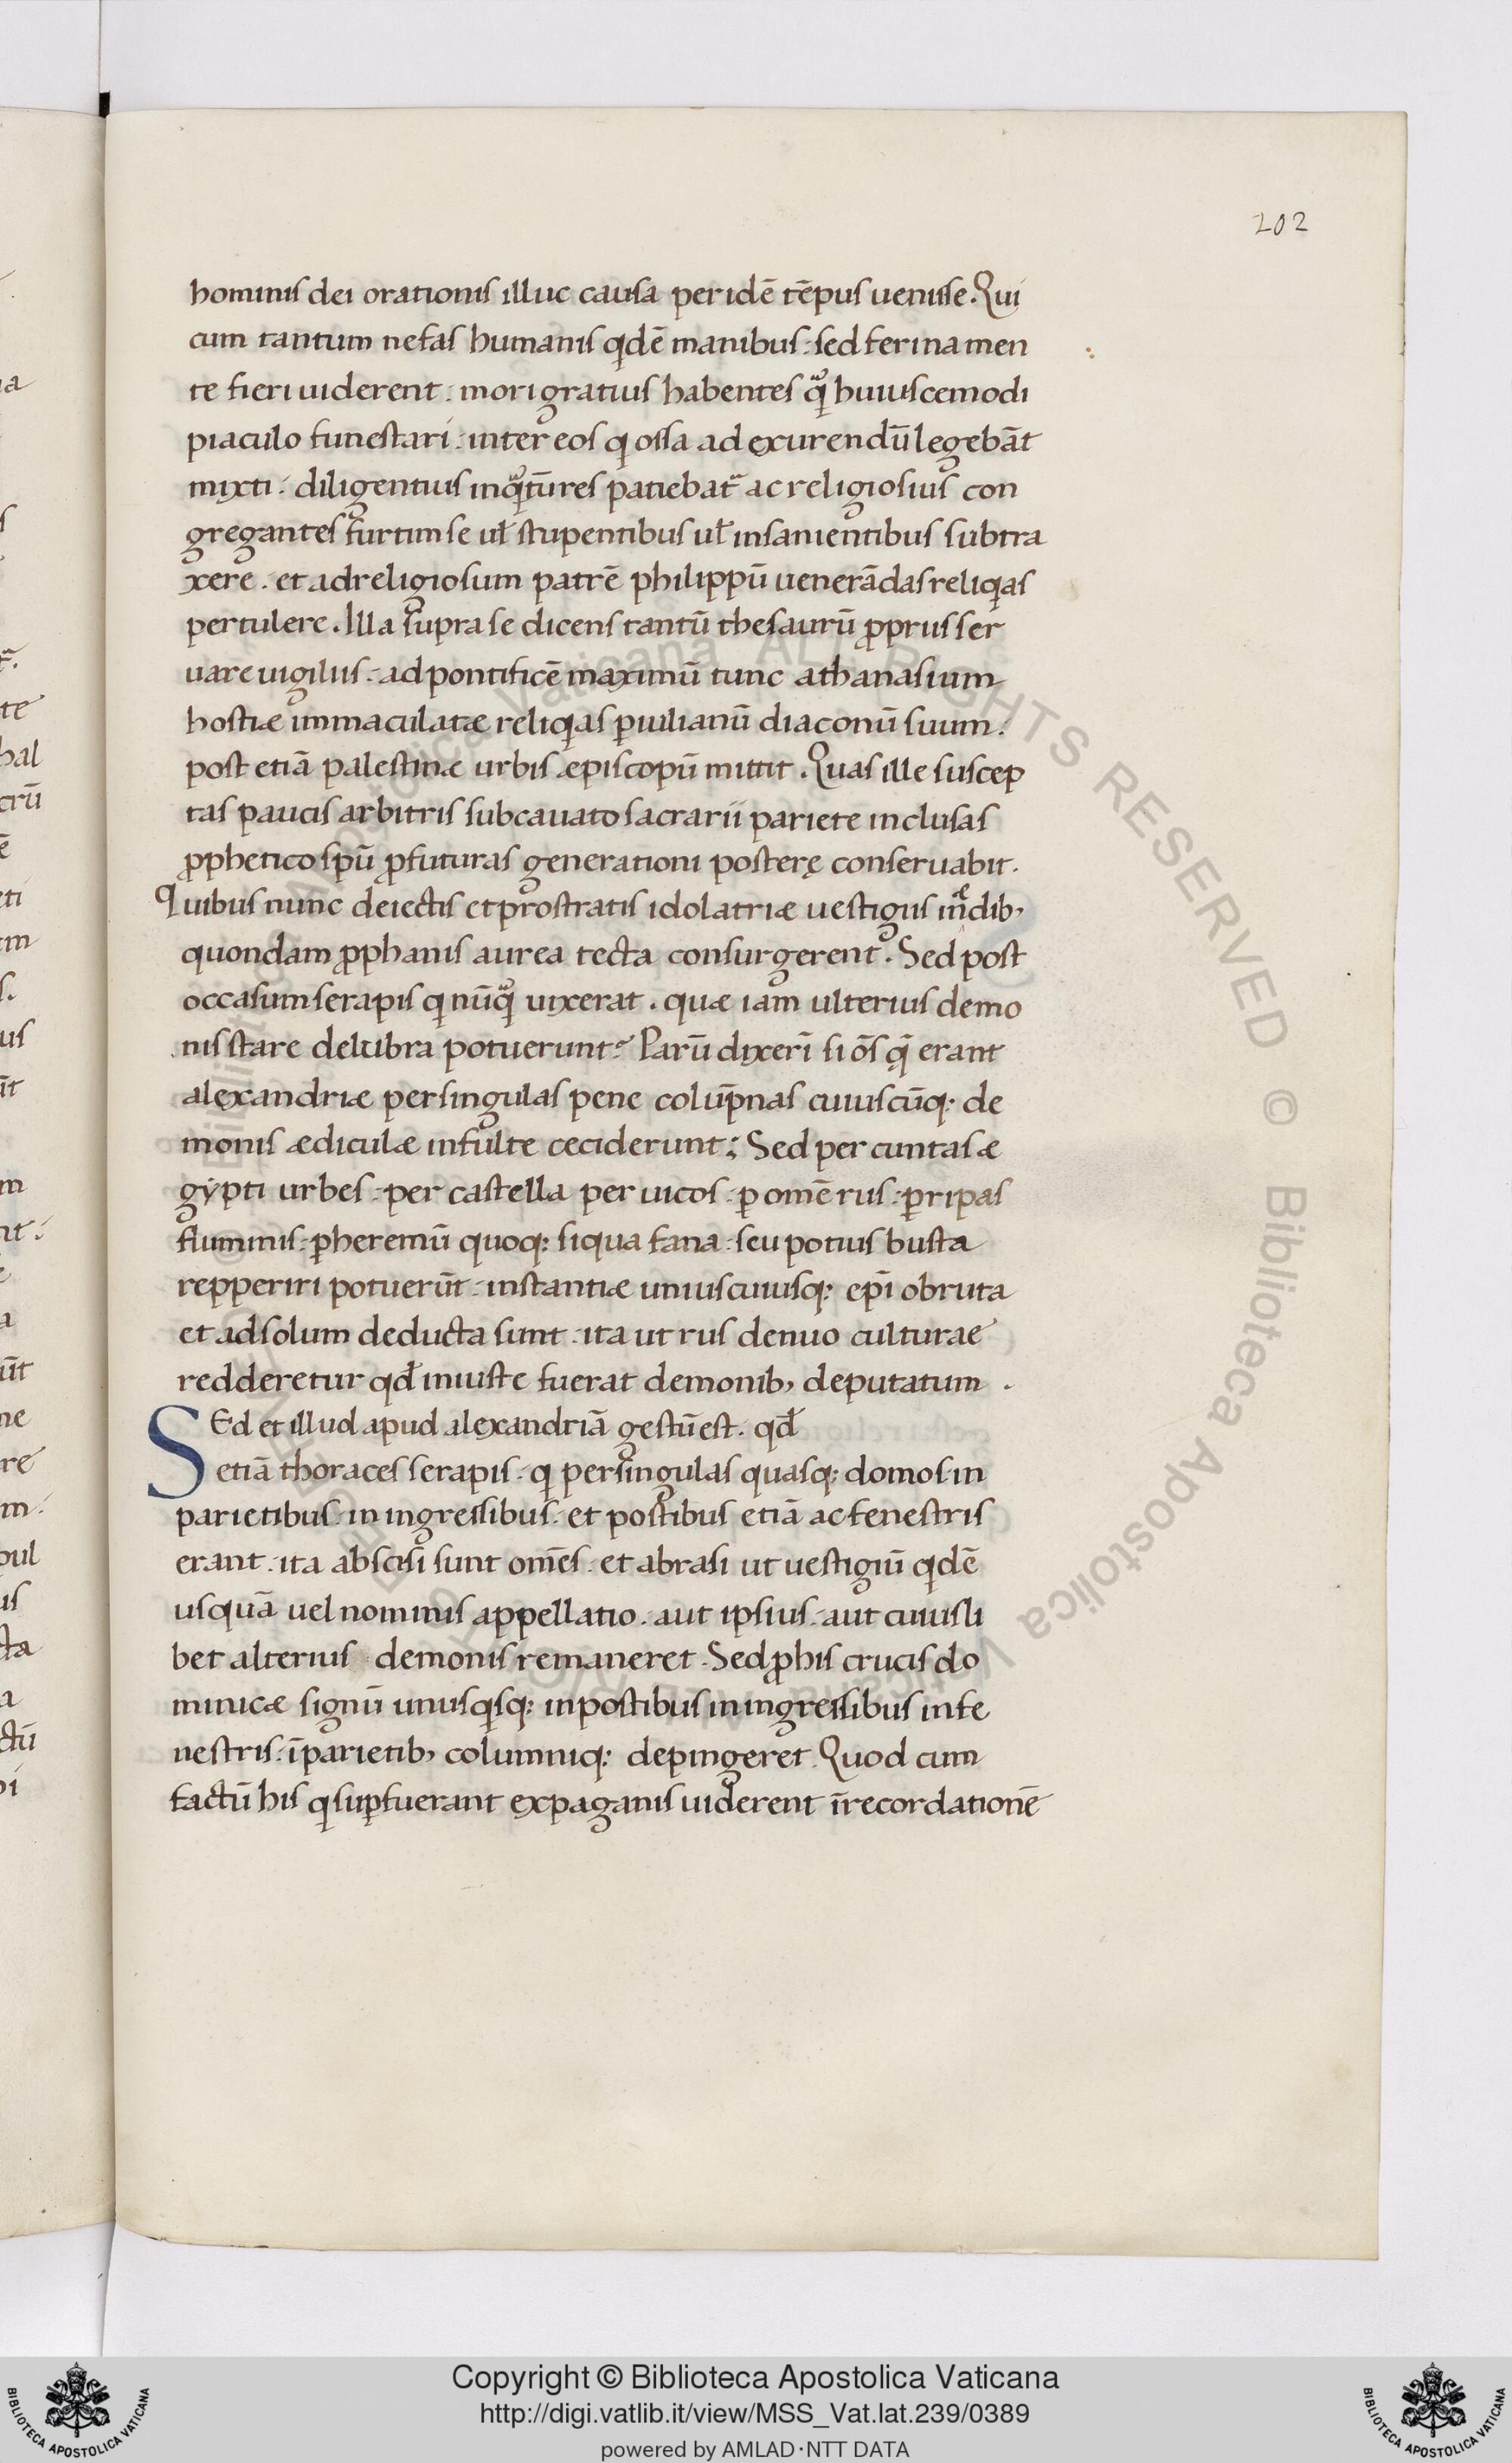 202
hominis dei orationis illuc causa per idē tēpus uenisse. Qui
cum tantum nefas humanis qdē manibus: sed ferina men
te fieri uiderent: mori gratius habentes qͣ huiuscemodi
piaculo funestari: inter eos q ossa ad exurendū legebāt
mixti: diligentius inqͣtū res patiebat᷑ ac religiosius con
gregantes furtim se ul̄ stupentibus ul̄ insanientibus subtra
xere. et ad religiosum patrē philippū uenerādas reliqas
pertulere. Illa supra se dicens tantū thesaurū ꝓpriis ser
uare uigiliis: ad pontificē maximū tunc athanasium
hostiæ immaculatæ reliqas ꝑ iulianū diaconū suum:
post etiā palestinæ urbis æpiscopū mittit. Quas ille suscep
tas paucis arbitris sub cauato sacrarii pariete inclusas
ꝓphetico spū ꝓfuturas generationi posterę conseruabit.
Quibus nunc deiectis et prostratis idolatriæ uestigiis in ędib,
quondam ꝓphanis aurea tecta consurgerent. Sed post
occasum serapis q nūqͣ uixerat. quæ iam ulterius demo
nis stare delubra potuerunt? Parū dixerī si ōs q̄ erant
alexandriæ per singulas pene colūpnas cuiuscūq; de
monis ædiculæ infulte ceciderunt; Sed per cuntas æ
gypti urbes: per castella per uicos: ꝑ omē rus: ꝑ ripas
fluminis: ꝑ heremū quoq; siqua fana: seu potius busta
repperiri potuerūt: instantiæ uniuscuiusq; epī obruta
et ad solum deducta sunt: ita ut rus denuo culturae
redderetur qđ iniuste fuerat demonib, deputatum .
SEd et illud apud alexandriā gestū est. qđ
etiā thoraces serapis: q per singulas quasq; domos in
parietibus: in ingressibus: et postibus etiā ac fenestris
erant: ita abscisi sunt omēs: et abrasi ut uestigiū qdē
usquā uel nominis appellatio. aut ipsius: aut cuiusli
bet alterius demonis remaneret. Sed ꝓ his crucis do
minicæ signū unusqsq; in postibus in ingressibus in fe
nestris: ī parietib, columniq; depingeret. Quod cum
factū his q suꝑfuerant ex paganis uiderent ī recordationē
Copyright © Biblioteca Apostolica Vaticana
http://digi.vatlib.it/view/MSS_Vat.lat.239/0389
powered by AMLAD·NTT DATA